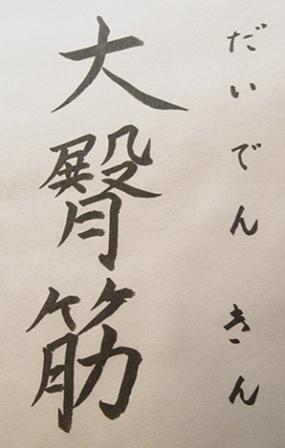 だいでんきん
大臀筋